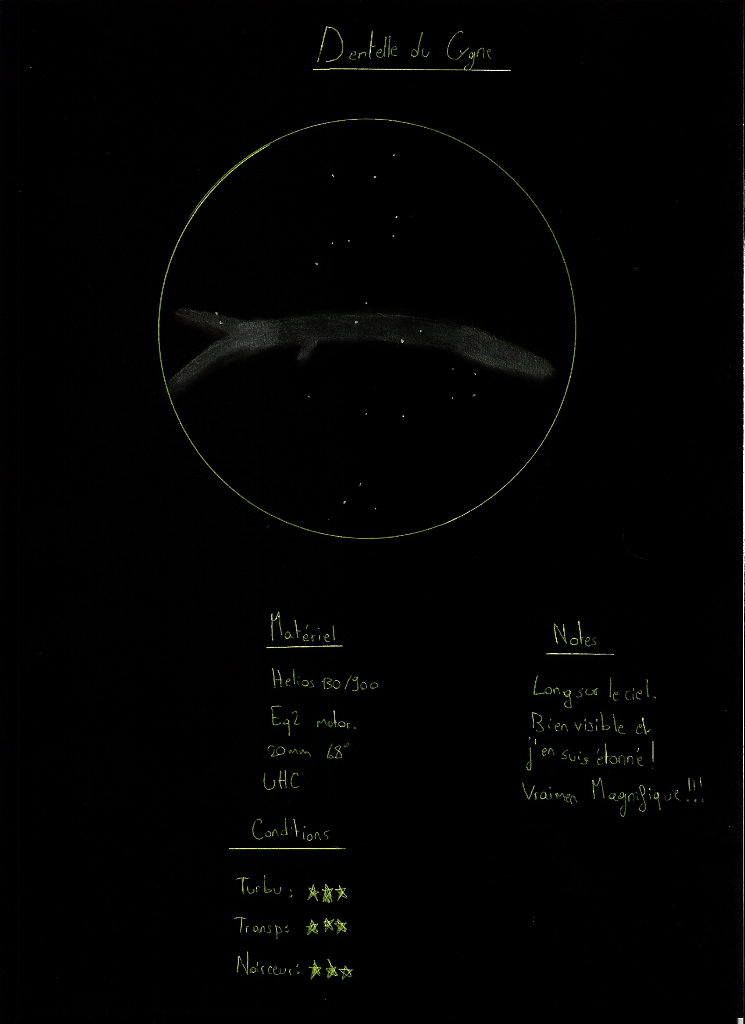 Dentelle du Cygne
Matériel
Helios 130/900
Eq2 motor.
20mm 68°
UHC
Conditions
Turbu: ★★★
Transp: ★★★
Noirceur: ★★★
Notes
Long sur le ciel.
Bien visible et
j'en suis étonné!
Vraimen Magnifique!!!